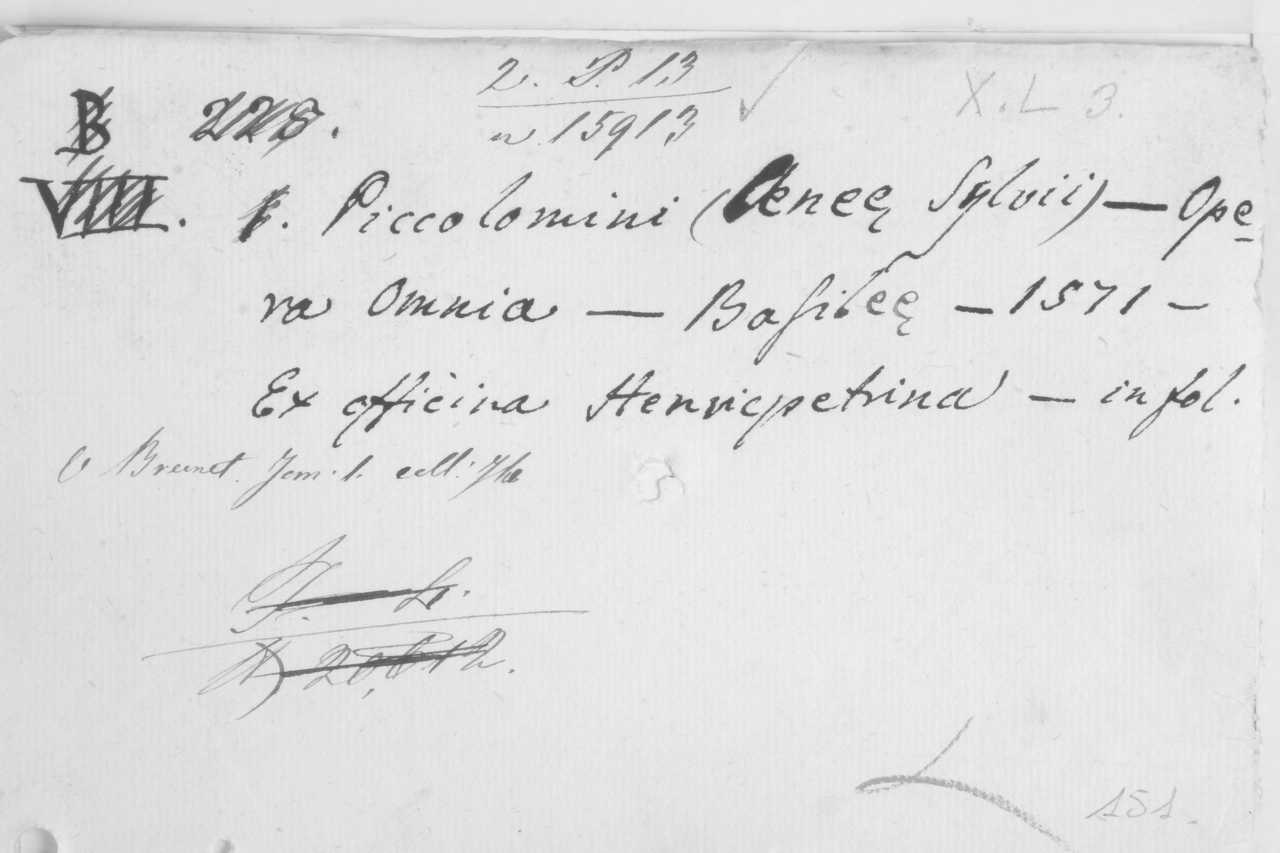 2. P. 13
X. L 3.
B 228.
n. 15913
VIIII. f. Piccolomini (Aeneę Sylvii) — Ope
ra Omnia — Basileę — 1571 —
Ex officina Henricpetrina — in fol.
V Brunet. Tom. 1. coll.
5
20,
151.